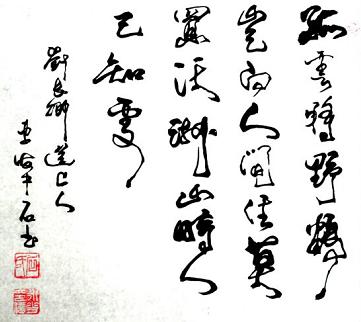 孤雲將野鶴
豈向人間住莫
買沃洲山時人
已知處
劉長卿送上人
石书